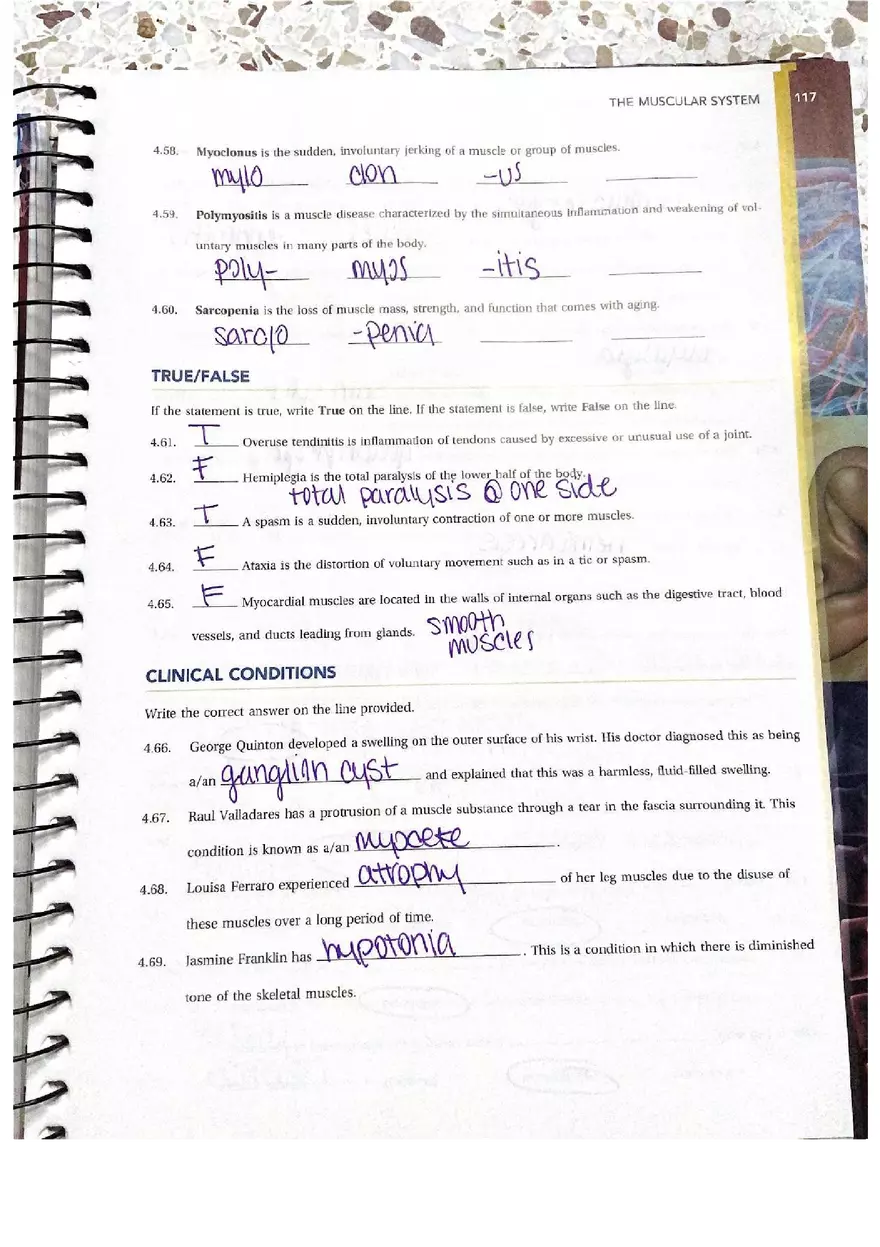 THE MUSCULAR SYSTEM 117
4.58. Myoclonus is the sudden, involuntary jerking of a muscle or group of muscles.
my/o clon -us
4.59. Polymyositis is a muscle disease characterized by the simultaneous inflammation and weakening of vol-
untary muscles in many parts of the body.
poly- myos -itis
4.60. Sarcopenia is the loss of muscle mass, strength, and function that comes with aging.
sarc/o -penia
TRUE/FALSE
If the statement is true, write True on the line. If the statement is false, write False on the line.
4.61. T Overuse tendinitis is inflammation of tendons caused by excessive or unusual use of a joint.
4.62. F Hemiplegia is the total paralysis of the lower half of the body.
total paralysis @ one side
4.63. T A spasm is a sudden, involuntary contraction of one or more muscles.
4.64. F Ataxia is the distortion of voluntary movement such as in a tic or spasm.
4.65. F Myocardial muscles are located in the walls of internal organs such as the digestive tract, blood
vessels, and ducts leading from glands. smooth
muscles
CLINICAL CONDITIONS
Write the correct answer on the line provided.
4.66. George Quinton developed a swelling on the outer surface of his wrist. His doctor diagnosed this as being
a/an ganglian cyst and explained that this was a harmless, fluid-filled swelling.
4.67. Raul Valladares has a protrusion of a muscle substance through a tear in the fascia surrounding it. This
condition is known as a/an myocele .
4.68. Louisa Ferraro experienced atrophy of her leg muscles due to the disuse of
these muscles over a long period of time.
4.69. Jasmine Franklin has hypotonia . This is a condition in which there is diminished
tone of the skeletal muscles.